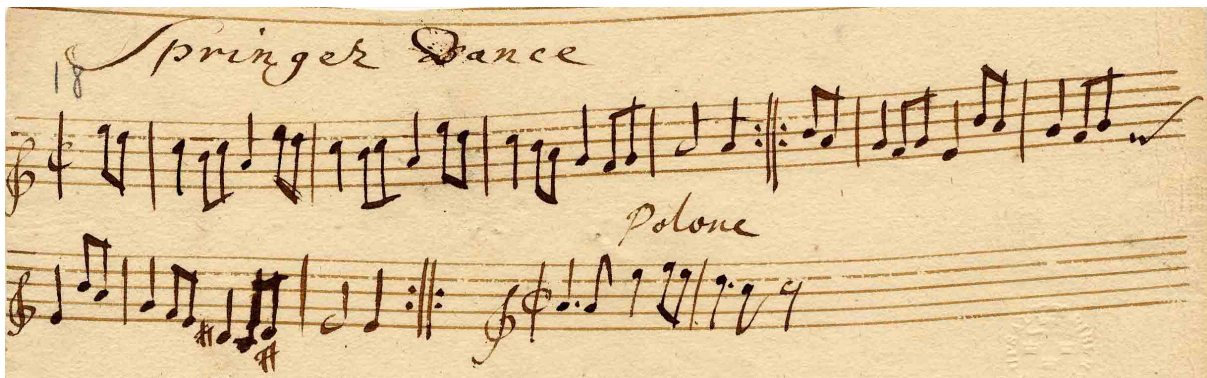 18
Springer Dance
Polone